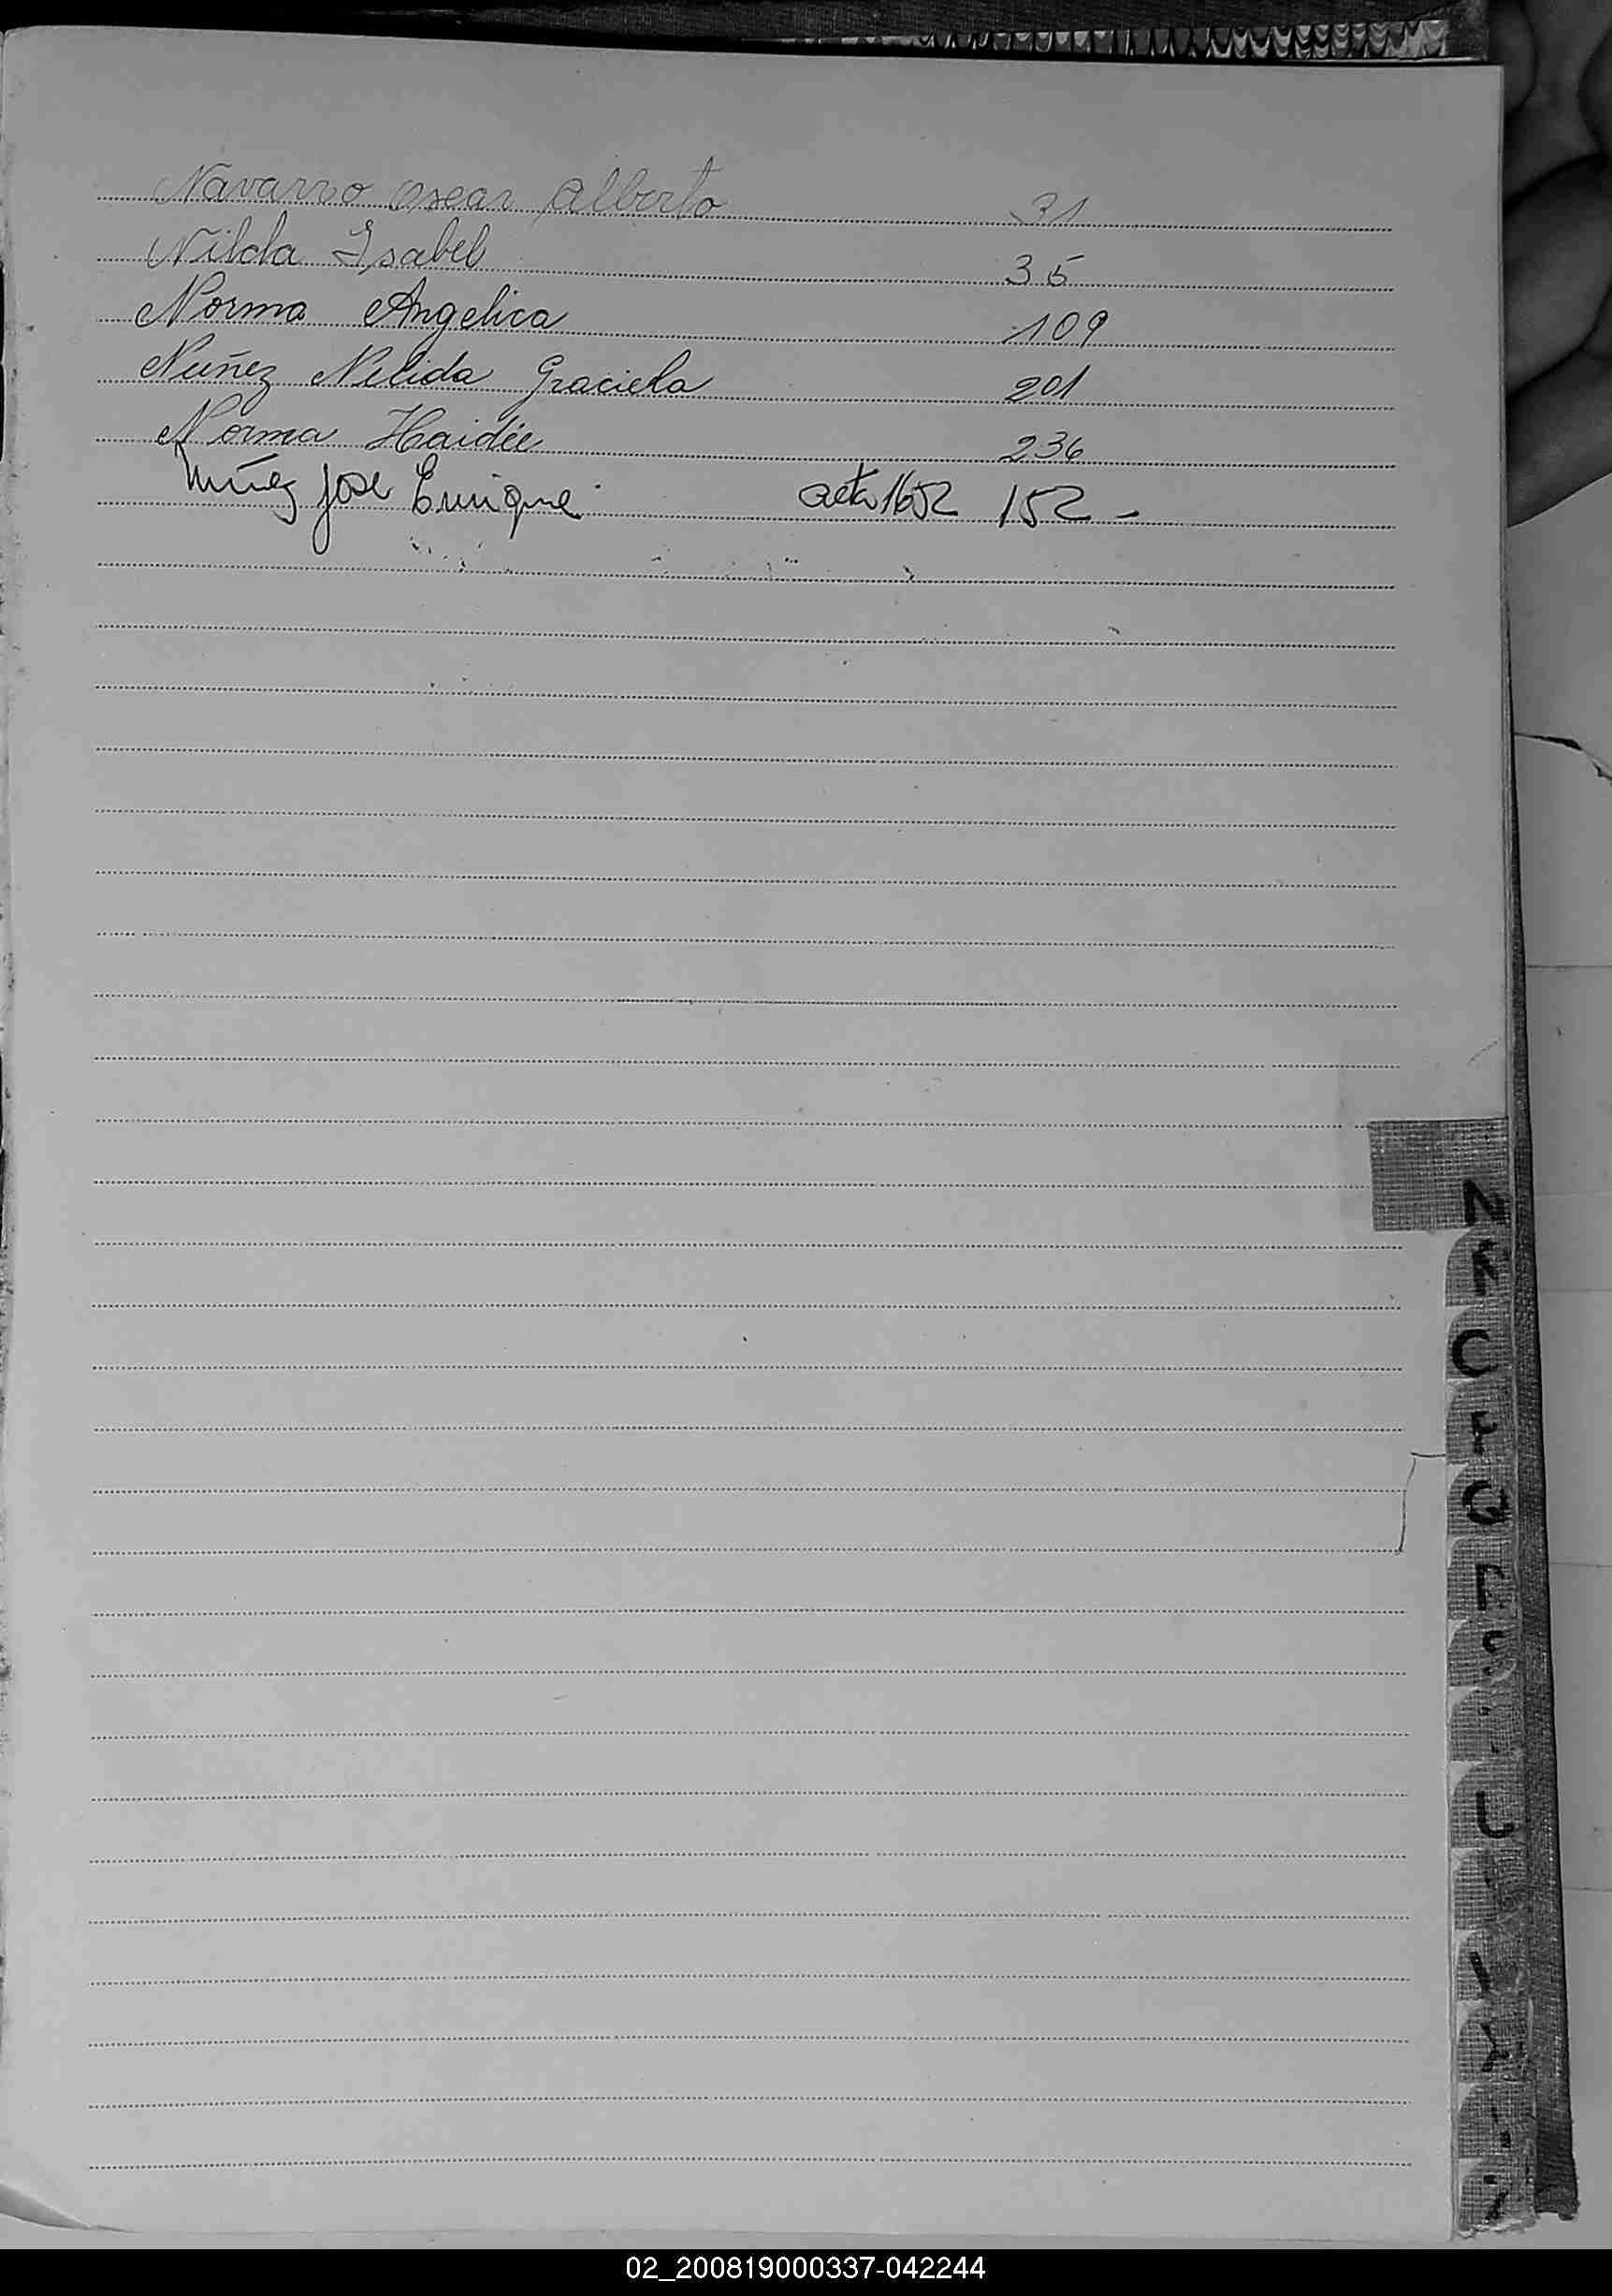 Navarro Oscar Alberto 31
Nilda Isabel 35
Norma Angelica 109
Nuñez Nelida Graciela 201
Norma Haidée 236
Nuñez Jose Enrique acta 1652 152 -
N
Ñ
O
P
Q
R
S
U
02_200819000337-042244